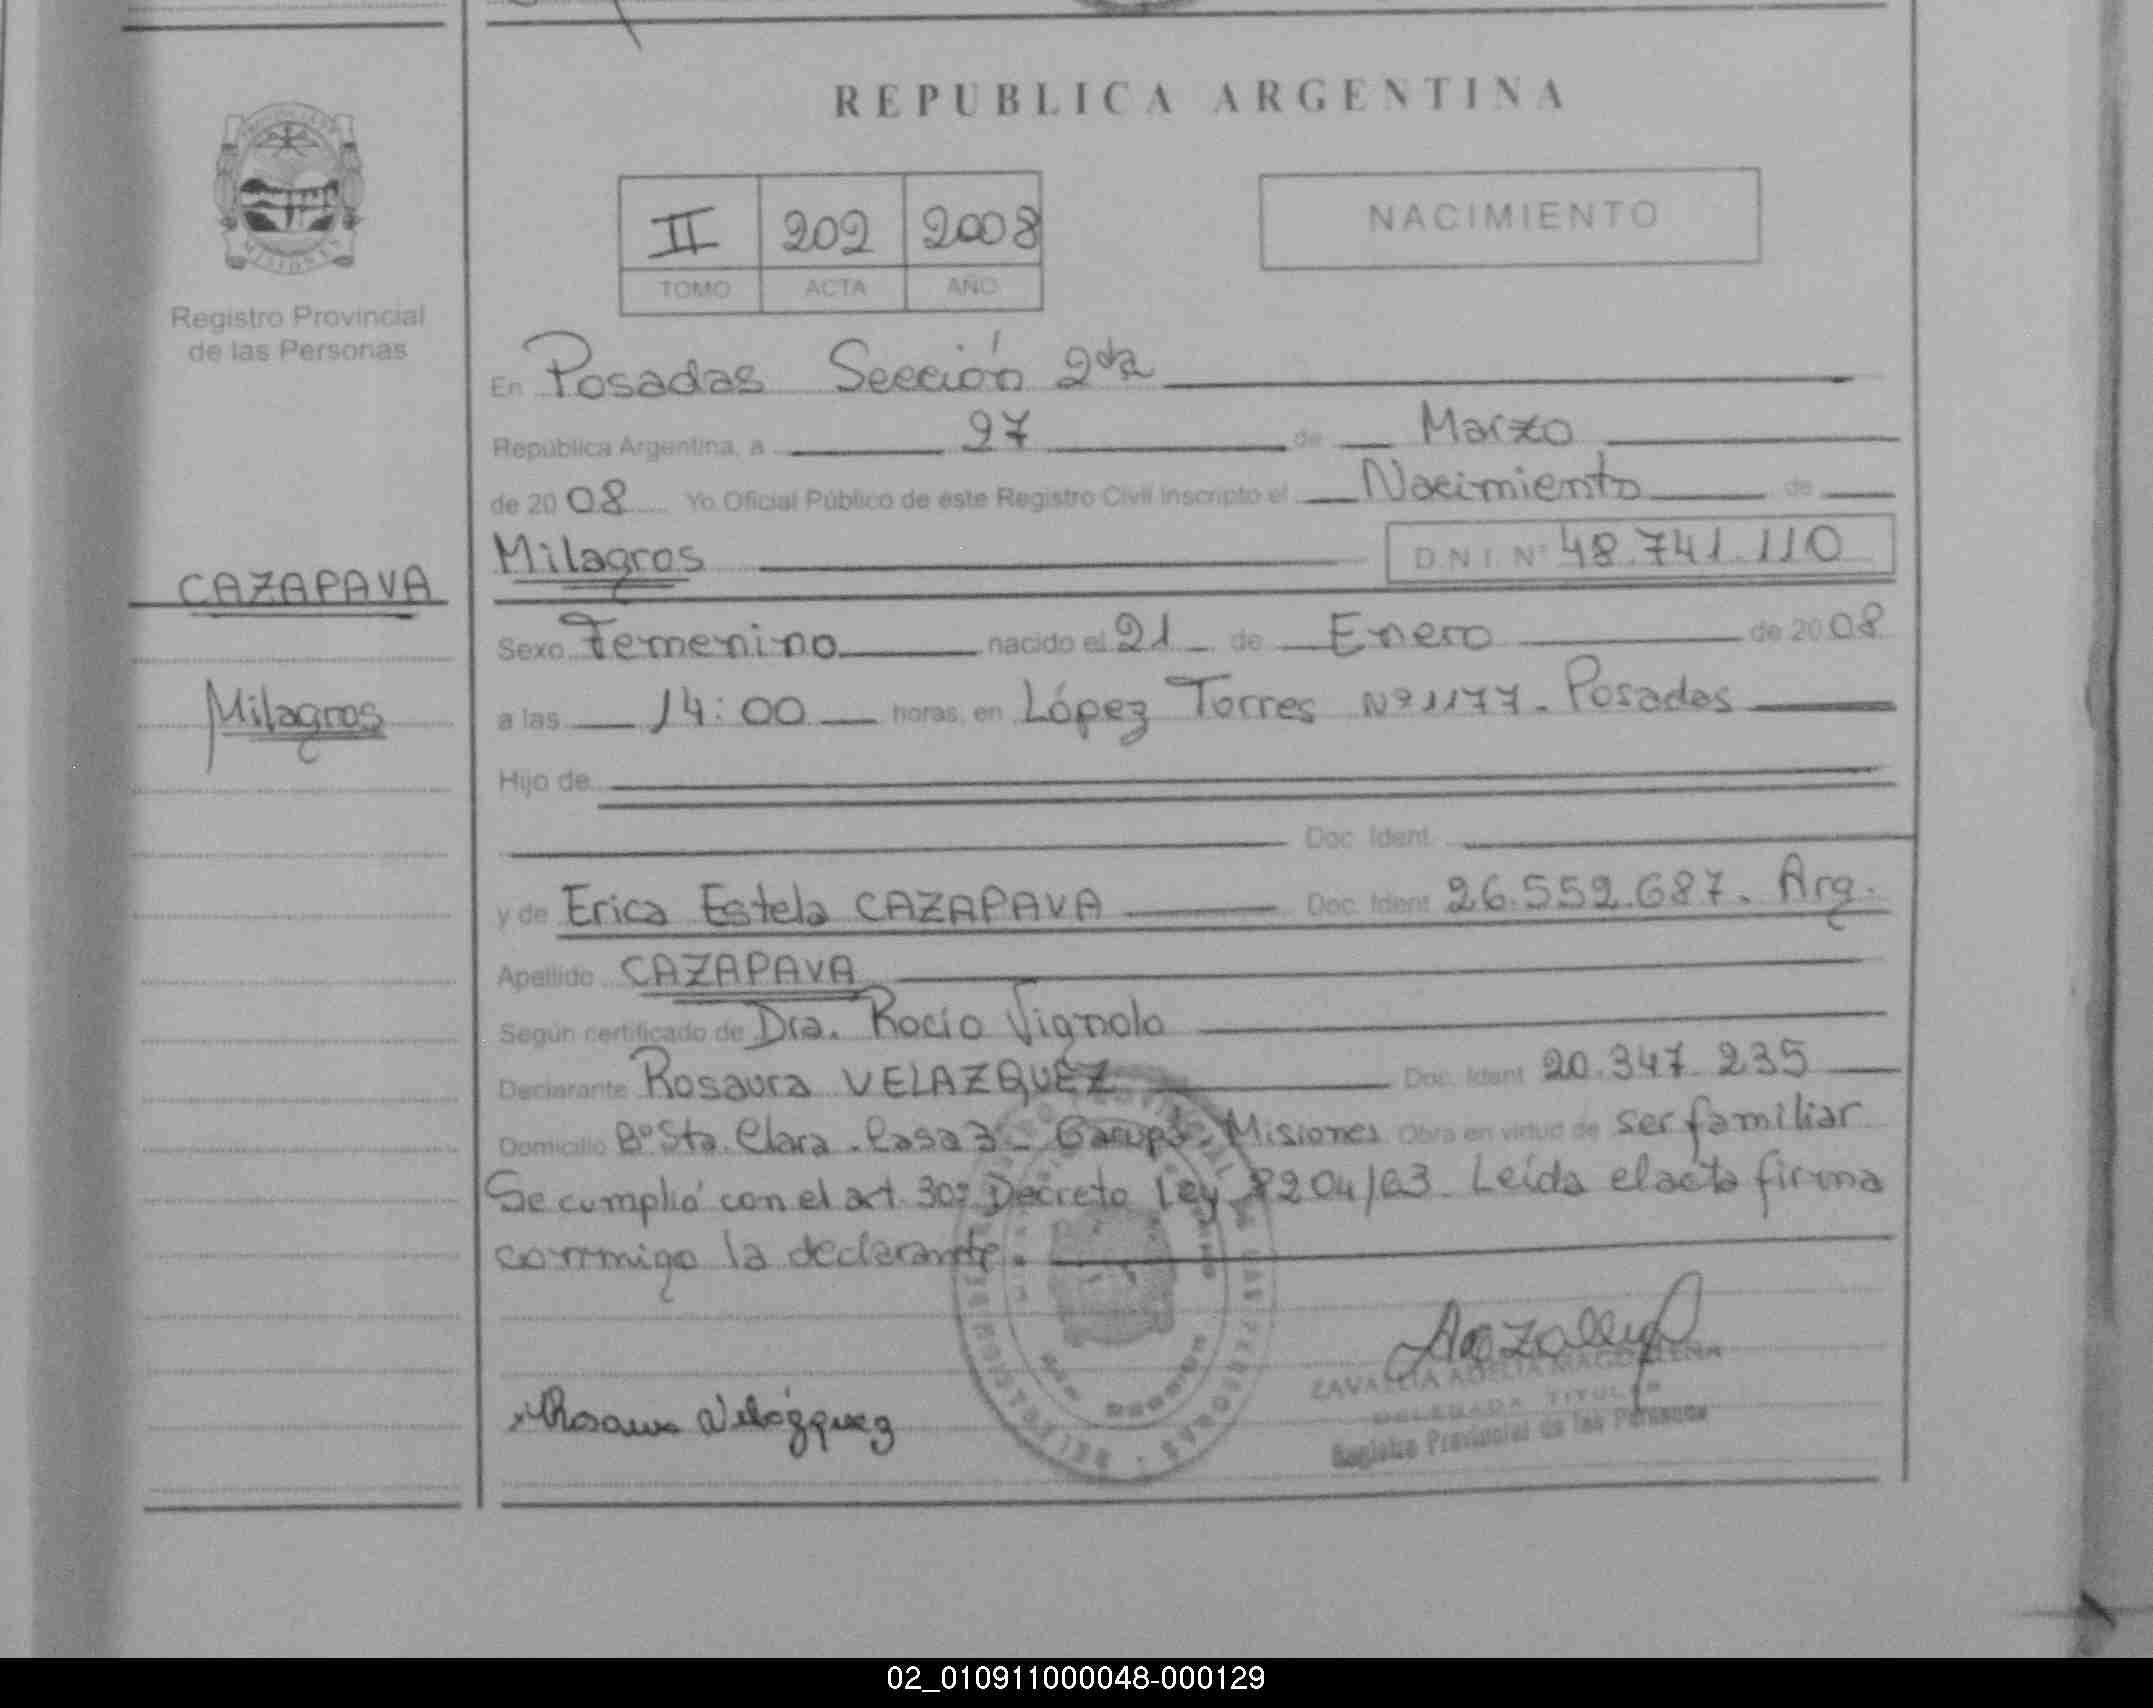 REPUBLICA ARGENTINA
II 202 2008
TOMO ACTA AÑO
NACIMIENTO
Registro Provincial
de las Personas
En Posadas Sección 2da
República Argentina, a 27 de Marzo
de 2008 Yo Oficial Público de este Registro Civil inscripto el Nacimiento de
CAZAPAVA
Milagros
Milagros D.N.I. Nº 48.741.110
Sexo Femenino nacido el 21 de Enero de 2008
a las 14:00 horas, en López Torres Nº 1177. Posadas
Hijo de
Doc. Ident.
y de Erica Estela CAZAPAVA Doc. Ident. 26.552.687. Arg.
Apellido CAZAPAVA
Según certificado de Dra. Rocío Vignolo
Declarante Rosaura VELAZQUEZ Doc. Ident. 20.347.235
Domicilio Bº Sta. Clara. Casa 3 - Garupá. Misiones Obra en virtud de ser familiar
Se cumplió con el art. 30º Decreto Ley 8204/63. Leída el acta firma
conmigo la declarante.
Rosaura Velázquez
ZAVALLIA ADELIA MAGDALENA
DELEGADA TITULAR
Registro Provincial de las Personas
02_010911000048-000129